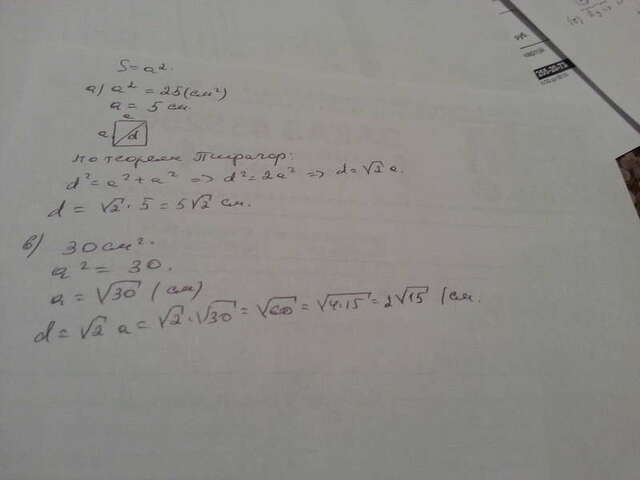 S = a².
а) a² = 25 (см²)
a = 5 см
a
a
d
по теореме Пифагор:
d² = a² + a² => d² = 2a² => d = √2 a.
d = √2 · 5 = 5√2 см.
в) 30 см².
a² = 30.
a = √30 (см)
d = √2 a = √2 · √30 = √60 = √4·15 = 2√15 (см.